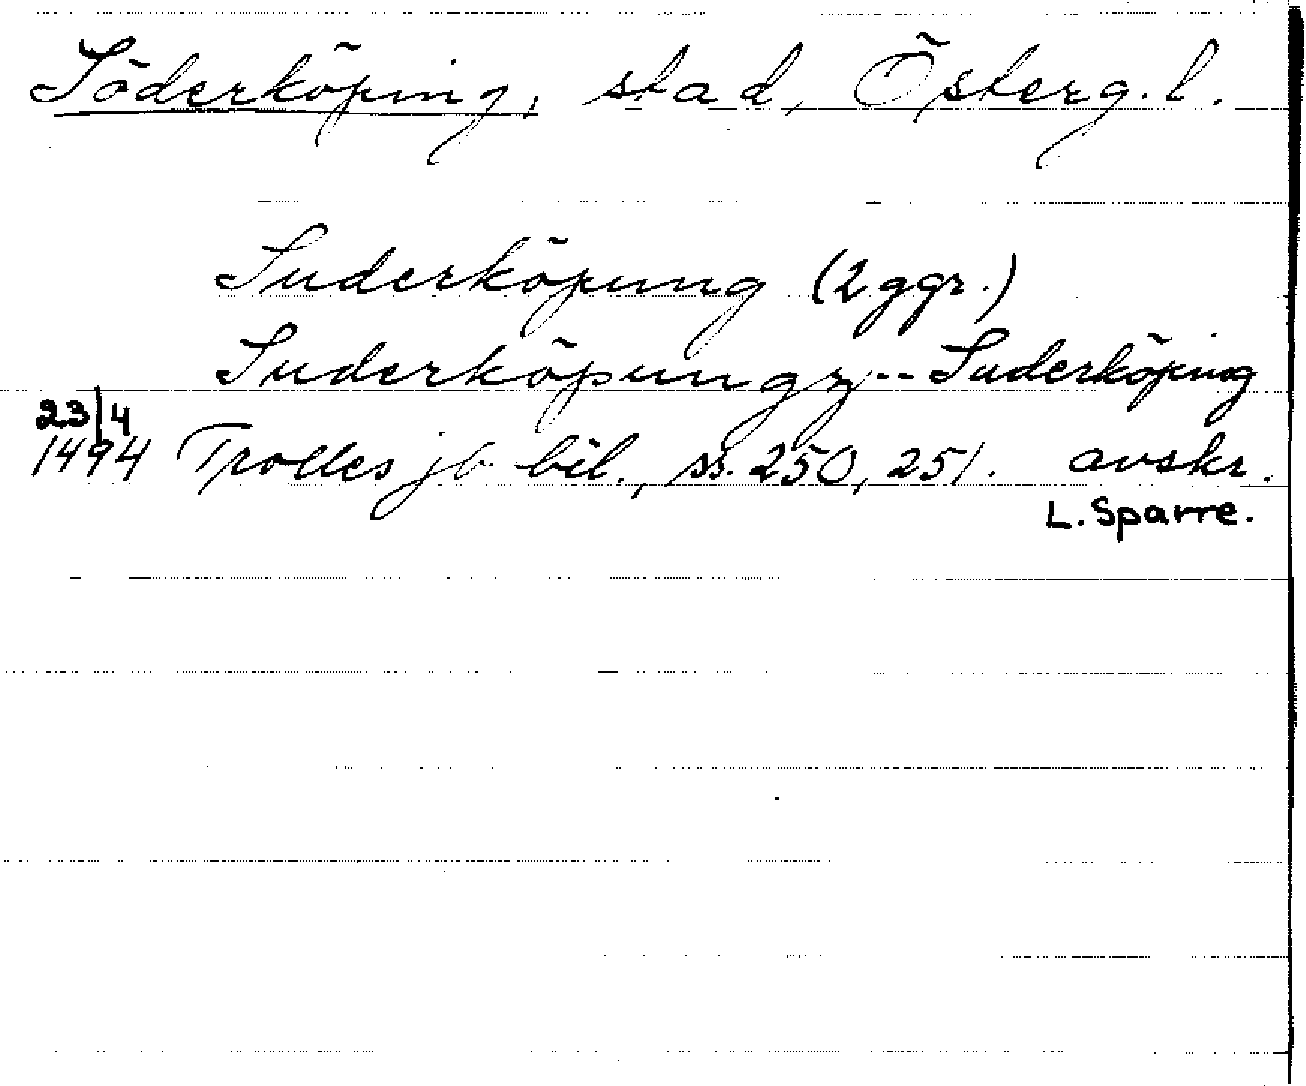 Söderköping, stad, Österg.l.
Suderköpung (2 ggr.)
Suderköpungz -- Suderköping
23/4
1494 Trolles jb bil., ss. 250, 251. avskr.
L. Sparre.